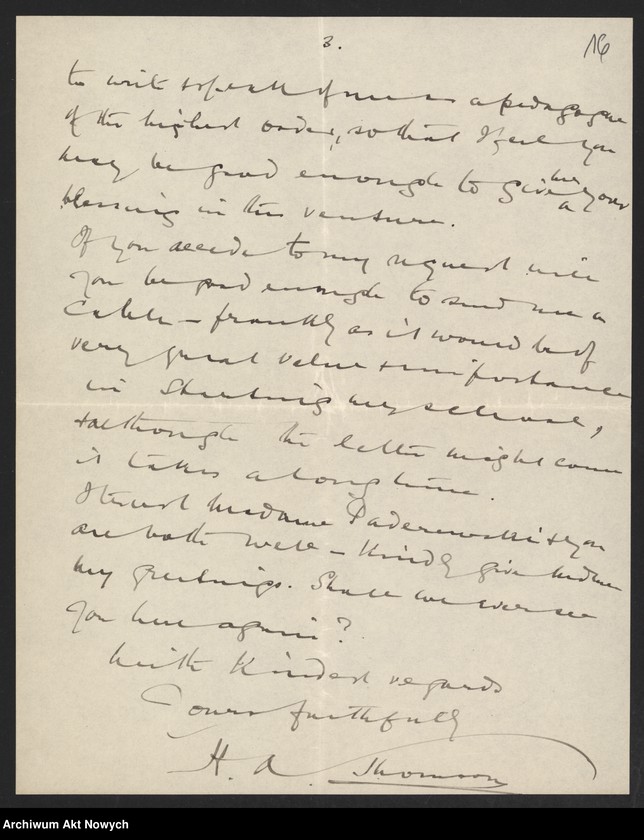 3.
16
to write & speak of me as a pedagogue
of the highest order, so that I feel you
may be good enough to give me your
blessing in this venture.
If you accede to my request will
you be good enough to send me a
Cable – frankly as it would be of
very great value & importance
in starting my school,
& although the letter might come
it takes a long time.
I trust Madame Paderewski & you
are both well – Kindly give Madame
my greetings. Shall we ever see
you here again?
With Kindest regards
Yours faithfully
H. A. Thomson
Archiwum Akt Nowych